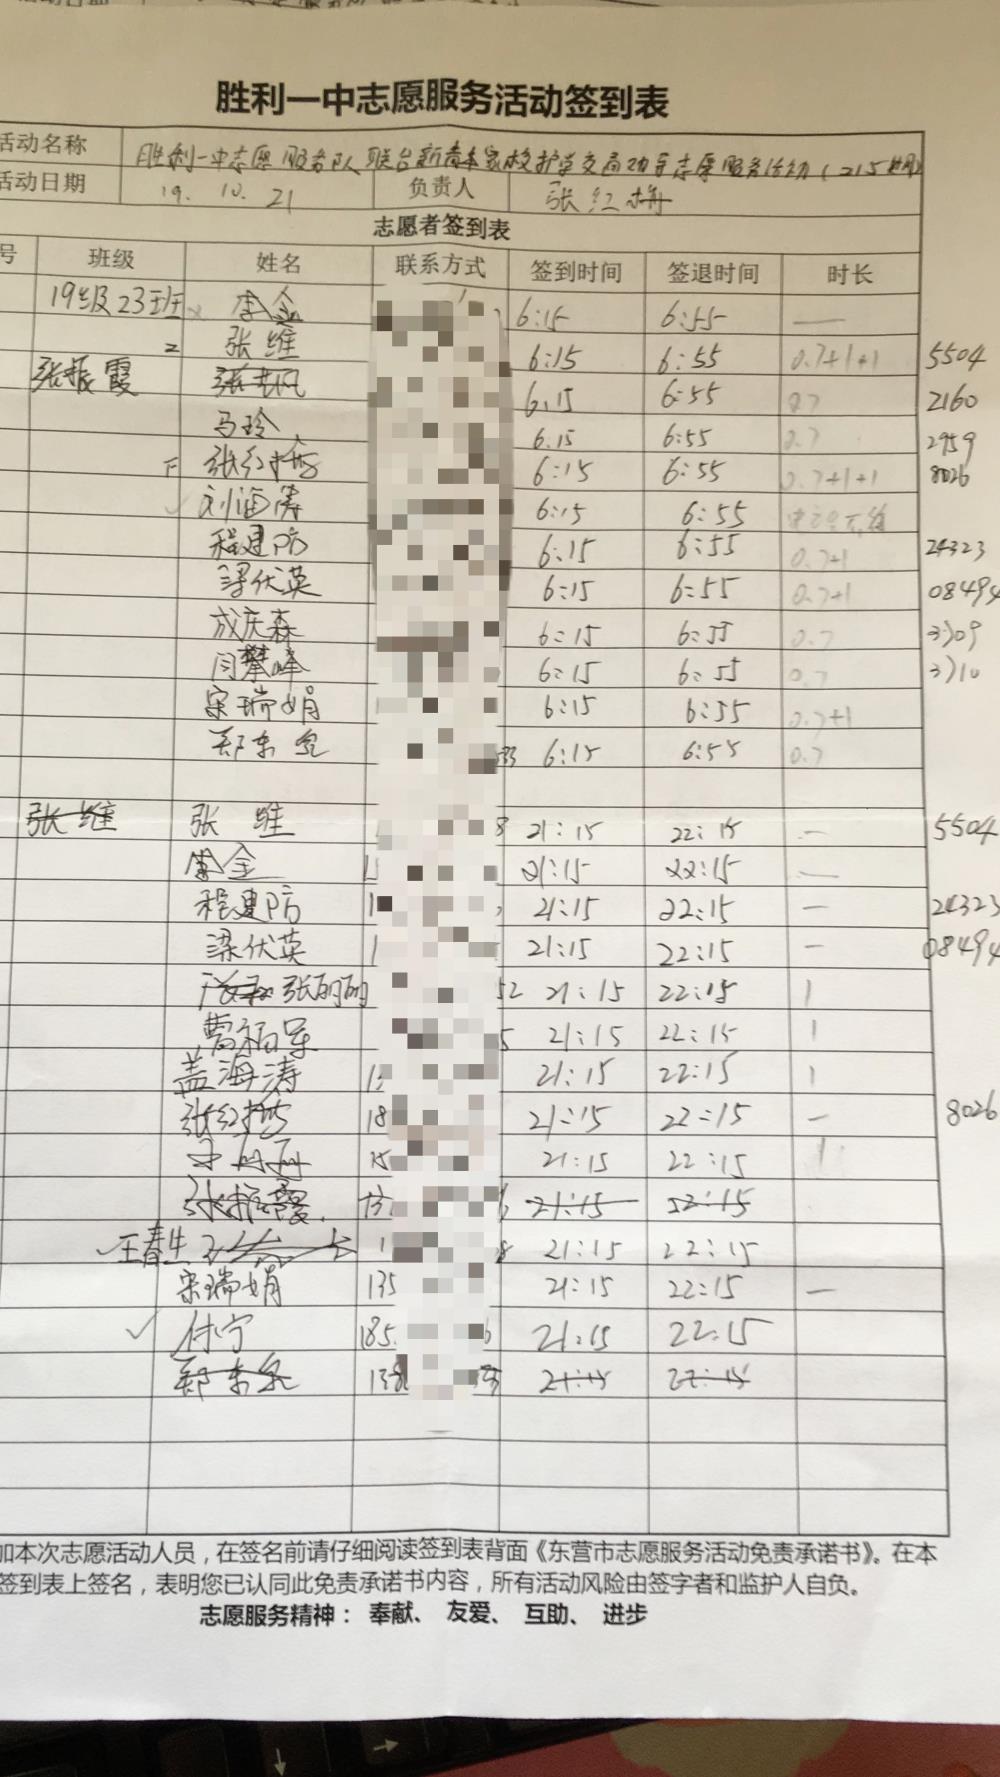 胜利一中志愿服务活动签到表
活动名称 胜利一中志愿服务队联合新 家校护学交 志愿服务活动(215
活动日期 19. 10. 21 负责人 张红梅
志愿者签到表
号 班级 姓名 联系方式 签到时间 签退时间 时长
19级23班 李金 6:15 6:55 —
张维 6:15 6:55 0.7+1+1 5504
张振霞 6:15 6:55 0.7 2160
马玲 6:15 6:55 0.7 2959
张红梅 6:15 6:55 0.7+1+1 8026
刘海涛 6:15 6:55
程建防 6:15 6:55 0.7+1 24323
梁伏英 6:15 6:55 0.7+1 08494
成庆森 6:15 6:55 0.7 3709
闫攀峰 6:15 6:55 0.7 3710
宋瑞娟 6:15 6:55 0.7+1
郑东 6:15 6:55 0.7
张维 张维 21:15 22:15 — 5504
李金 21:15 22:15 —
程建防 21:15 22:15 — 24323
梁伏英 21:15 22:15 — 08494
张丽丽 52 21:15 22:15 1
曹福军 5 21:15 22:15 1
盖海涛 21:15 22:15 1
张红梅 18 21:15 22:15 — 8026
15 21:15 22:15
张振霞 13 21:15 22:15
王春生 1 21:15 22:15
宋瑞娟 135 21:15 22:15 —
✓ 付宁 185 6 21:15 22:15
郑东 138 21:15 22:15
加本次志愿活动人员，在签名前请仔细阅读签到表背面《东营市志愿服务活动免责承诺书》。在本
签到表上签名，表明您已认同此免责承诺书内容，所有活动风险由签字者和监护人自负。
志愿服务精神： 奉献、 友爱、 互助、 进步